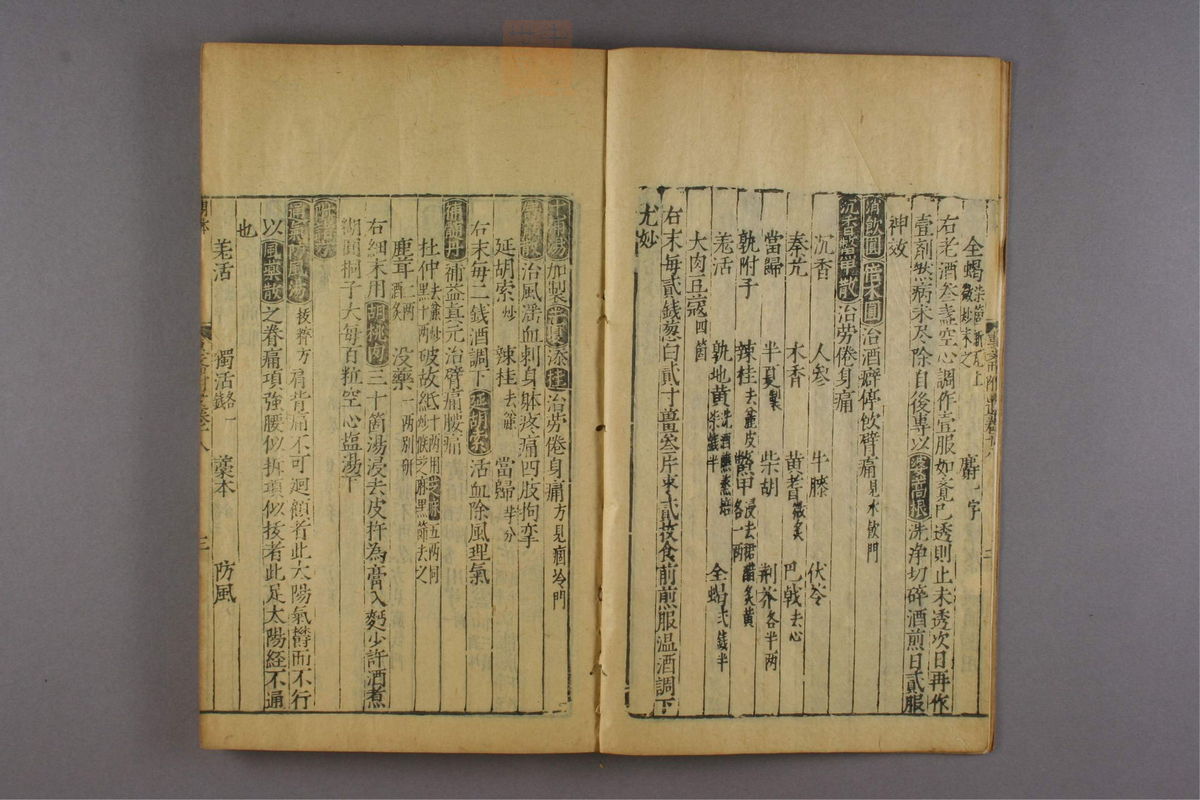 全蝎 麝一字
右老酒叁盞空心調作壹服如覺已透則止未透次日再作
壹劑然病未尽除自後專以 洗净切碎酒煎日貳服
神效
消飲圓 倍术圓 治酒癖停飲臂痛見水飲門
沉香鱉甲散 治劳倦身痛
沉香 人參 牛膝 伏苓
秦艽 木香 黄耆微炙 巴戟去心
當歸 半夏製 柴胡 荆芥各半两
熟附子 辣桂去麄皮 鱉甲浸去裙醋炙黄各一两
羌活 熟地黄 全蝎弍錢半
大肉豆蔲四箇
右末每貳錢葱白貳寸薑叁片枣貳枚食前煎服温酒調下
尤妙
加製 添桂 治劳倦身痛方見痼冷門
治風滛血刺身躰疼痛四肢拘挛
延胡索炒 辣桂去麄 當歸半分
右末每二錢酒調下 延胡索 活血除風理氣
補髓丹 補益真元治臂痛腰痛
杜仲去麄炒黑十两 破故紙十两用芝麻五两同炒候芝麻黑篩去之
鹿茸二两酒炙 没藥一两别研
右細末用 胡桃肉 三十箇湯浸去皮杵為膏入麪少許酒煮
湖圓桐子大每百粒空心塩湯下
附諸方
通氣防風湯 拔粹方 肩背痛不可廻顧者此太陽氣欝而不行
以 風藥散 之脊痛項強腰似折項似拔者此足太陽経不通
也
羗活 獨活各一錢 藁本 防風